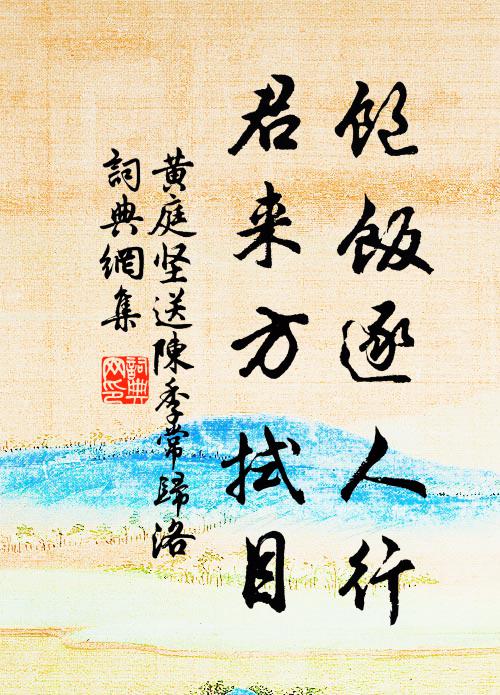 飽飯逐人行
君来方拭目
黄庭坚送陳季常歸洛
詞典網集
詞典
网印